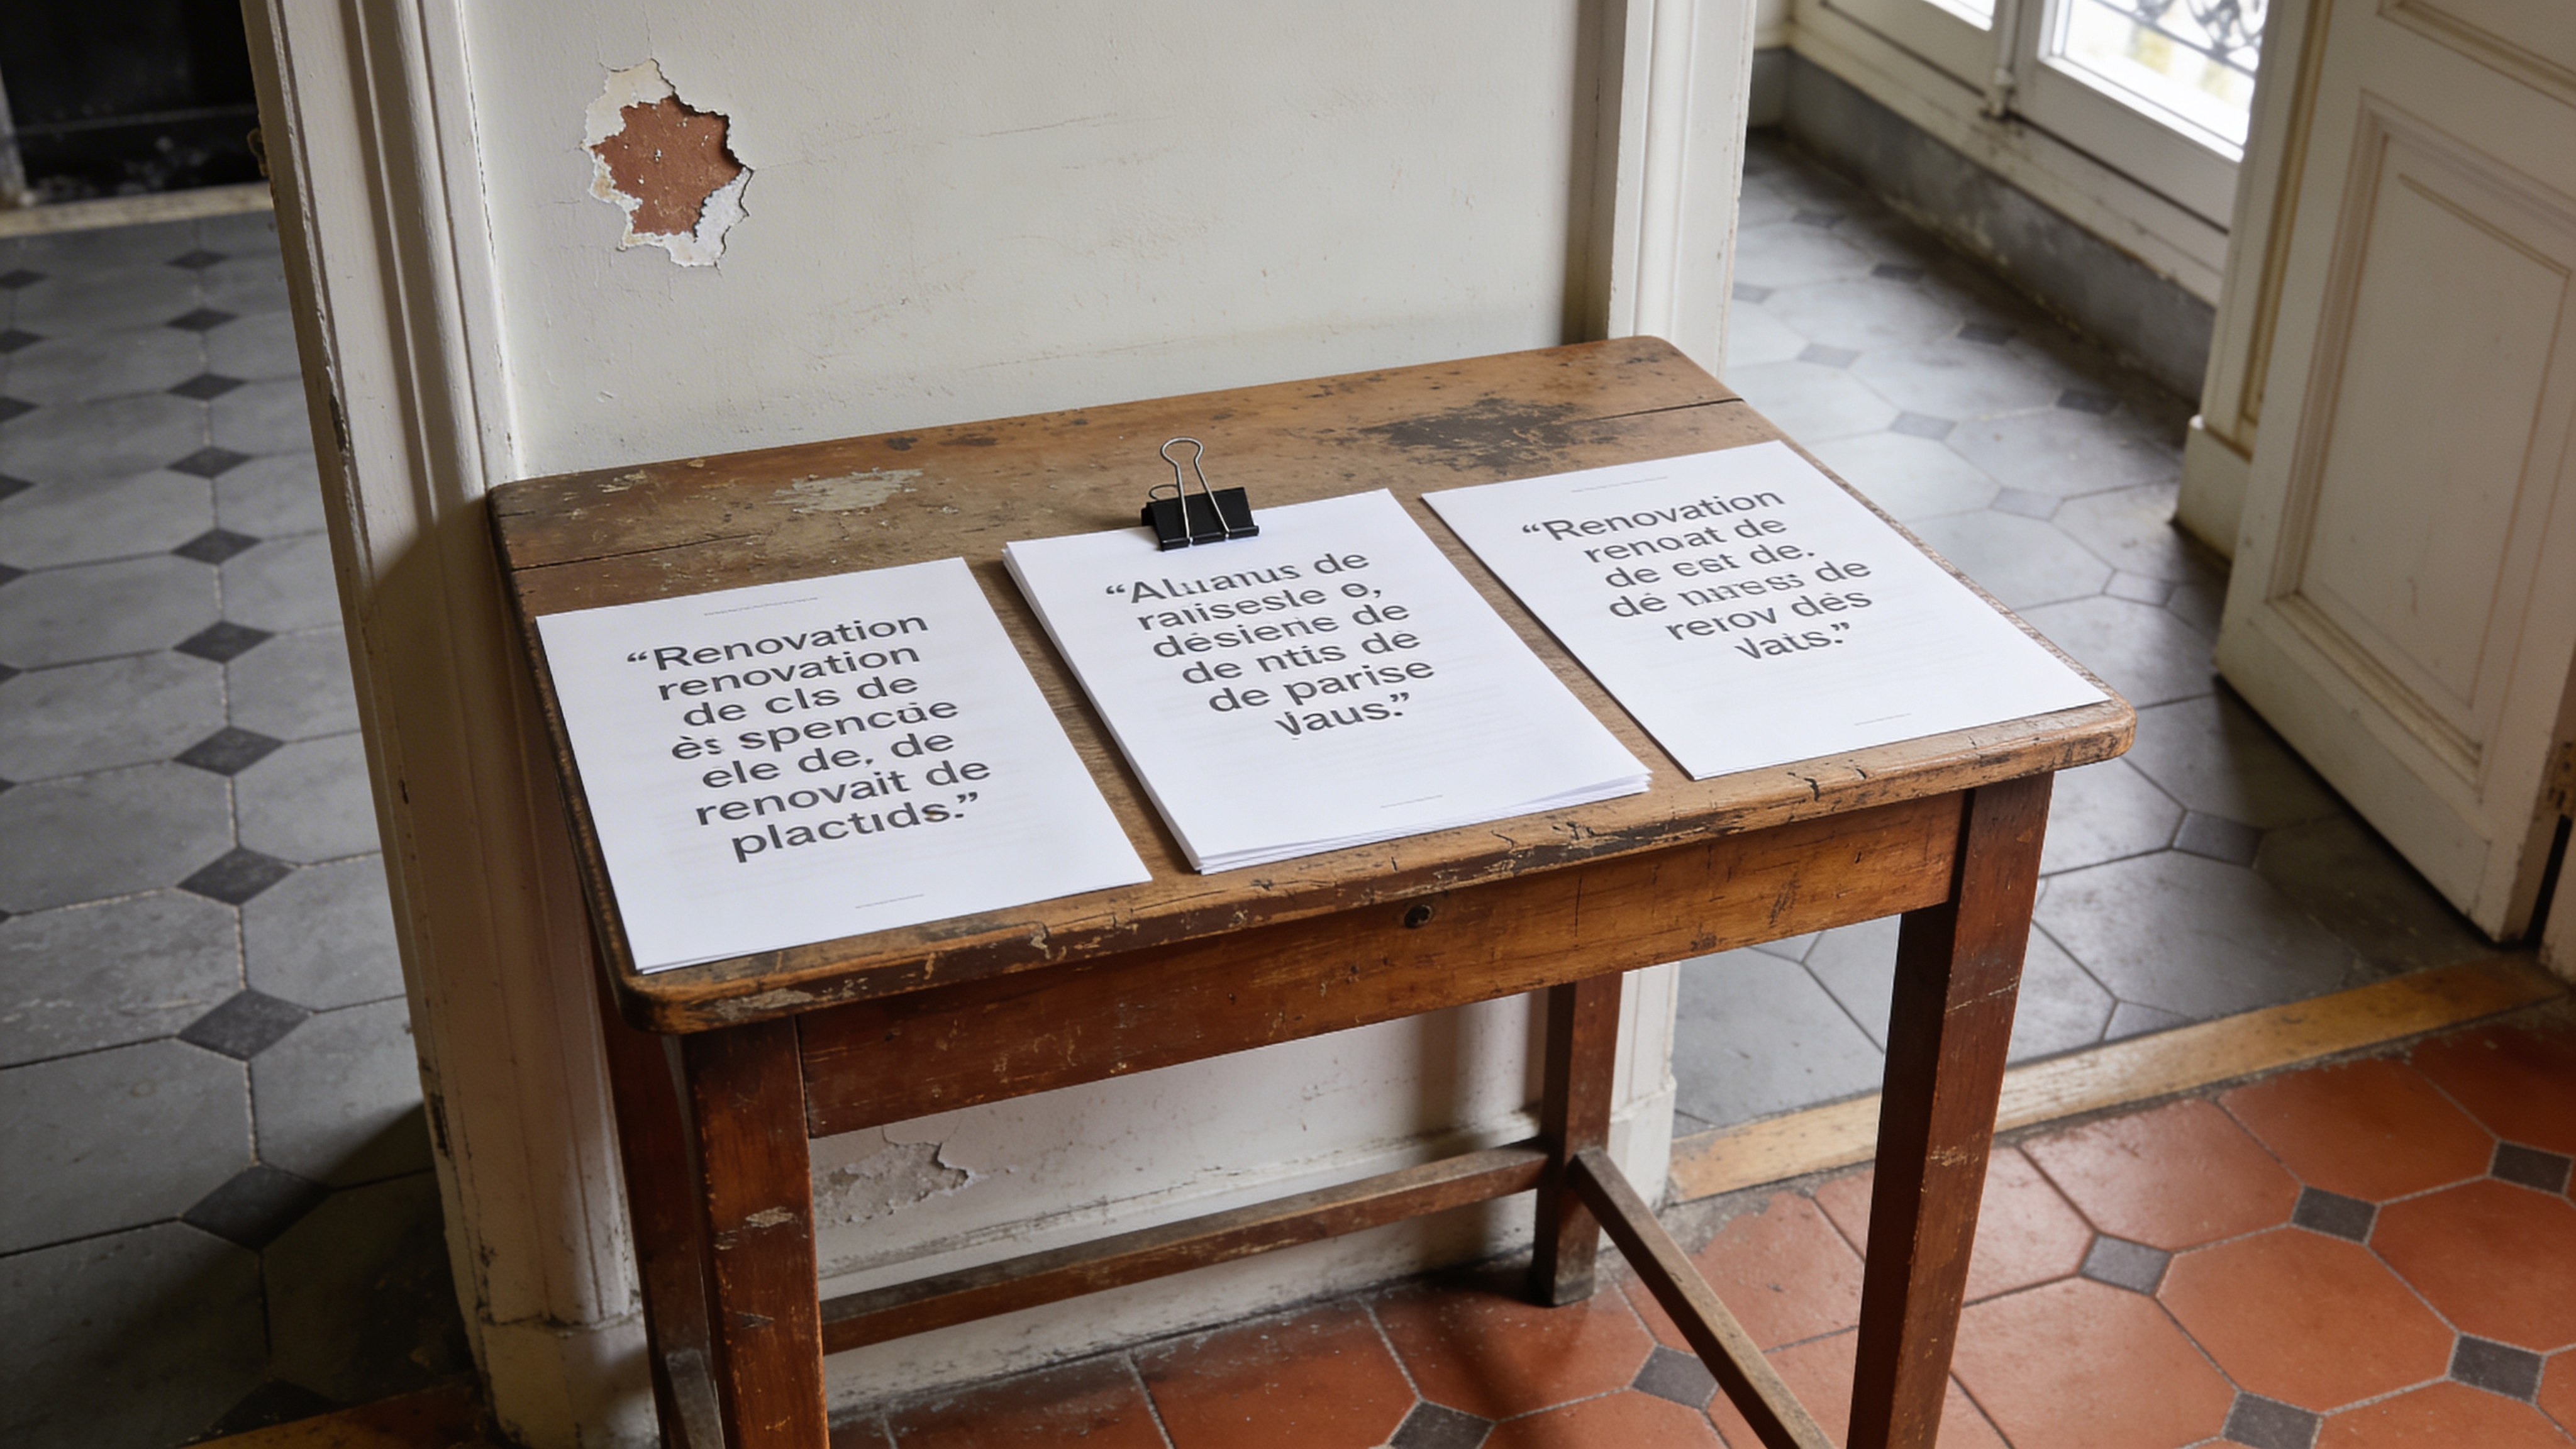 “Renovation
renovation
de cls de
ès spencüe
ele de, de
renovait de
plactids.”
de
raliseste e,
désiene de
de ntis dè
de parise
Vaus.”
“Renovation
renoat de
de est de.
dé de
rerov dès
Vats.”